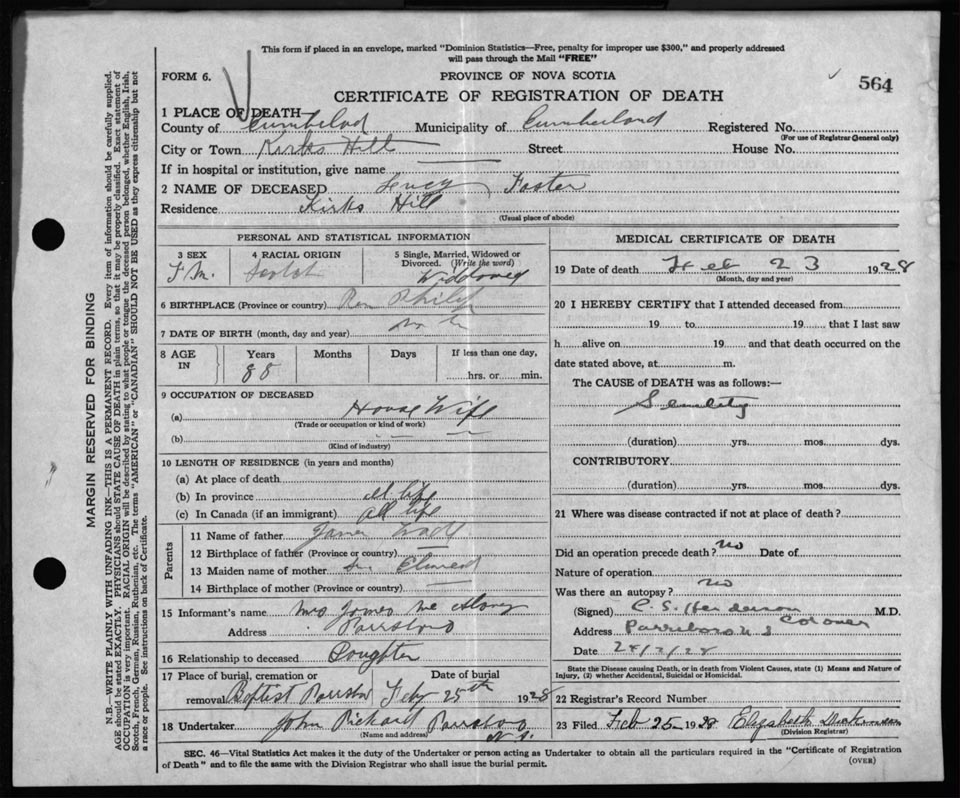 This form if placed in an envelope, marked "Dominion Statistics—Free, penalty for improper use $300," and properly addressed
will pass through the Mail "FREE"
FORM 6.
PROVINCE OF NOVA SCOTIA
564
CERTIFICATE OF REGISTRATION OF DEATH
1 PLACE OF DEATH—
County of Municipality of Cumberland Registered No.
(For use of Registrar General only)
City or Town Kirks Hill Street House No.
If in hospital or institution, give name
2 NAME OF DECEASED Foster
Residence Kirks Hill
(Usual place of abode)
PERSONAL AND STATISTICAL INFORMATION
3 SEX 4 RACIAL ORIGIN 5 Single, Married, Widowed or
Divorced. (Write the word)
Scotch Widowed
6 BIRTHPLACE (Province or country) Philip
7 DATE OF BIRTH (month, day and year)
8 AGE IN Years Months Days If less than one day,
88 hrs. or min.
9 OCCUPATION OF DECEASED
(a) House Wife
(Trade or occupation or kind of work)
(b)
(Kind of industry)
10 LENGTH OF RESIDENCE (in years and months)
(a) At place of death
(b) In province all life
(c) In Canada (if an immigrant) all life
Parents
11 Name of father James
12 Birthplace of father (Province or country)
13 Maiden name of mother
14 Birthplace of mother (Province or country)
15 Informant's name Mrs James
Address Parrsboro
16 Relationship to deceased Doughter
17 Place of burial, cremation or Date of burial
removal Baptist Parrsboro Feby 25th 1928
18 Undertaker John Rickard Parrsboro
(Name and address) N.S.
MEDICAL CERTIFICATE OF DEATH
19 Date of death Feb 23 1928
(Month, day and year)
20 I HEREBY CERTIFY that I attended deceased from
19 to 19 that I last saw
h alive on 19 and that death occurred on the
date stated above, at m.
The CAUSE of DEATH was as follows:—
Senility
(duration) yrs. mos. dys.
CONTRIBUTORY
(duration) yrs. mos. dys.
21 Where was disease contracted if not at place of death?
Did an operation precede death? no Date of
Nature of operation
Was there an autopsy? no
(Signed) C. S. Henderson M.D.
Coroner
Address Parrsboro N S
Date 24/2/28
State the Disease causing Death, or in death from Violent Causes, state (1) Means and Nature of
Injury, (2) whether Accidental, Suicidal or Homicidal.
22 Registrar's Record Number
23 Filed Feb 25 1928 Elizabeth
(Division Registrar)
SEC. 46—Vital Statistics Act makes it the duty of the Undertaker or person acting as Undertaker to obtain all the particulars required in the "Certificate of Registration
of Death" and to file the same with the Division Registrar who shall issue the burial permit.
(OVER)
MARGIN RESERVED FOR BINDING
N.B.—WRITE PLAINLY WITH UNFADING INK—THIS IS A PERMANENT RECORD. Every item of information should be carefully supplied.
AGE should be stated EXACTLY. PHYSICIANS should STATE CAUSE OF DEATH in plain terms, so that it may be properly classified. Exact statement of
OCCUPATION is very important. RACIAL ORIGIN will be described by stating to what people or tongue the deceased person belonged, whether English, Irish,
Scotch, French, German, Russian, Ruthenian, etc. The terms "AMERICAN" or "CANADIAN" SHOULD NOT BE USED as they express citizenship but not
a race or people. See instructions on back of Certificate.